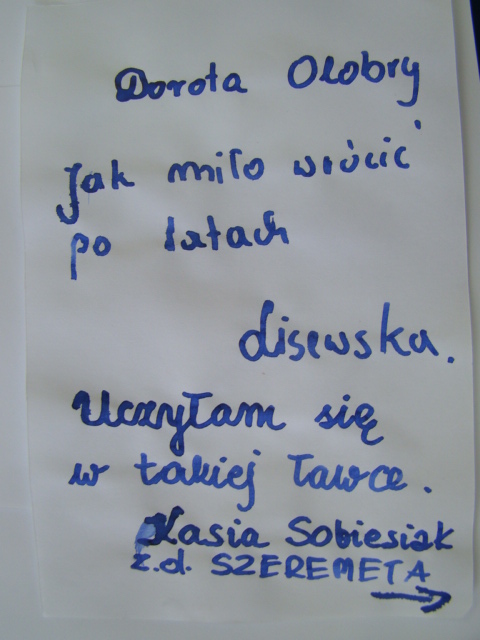 Dorota Olobry
Jak miło wrócić
po latach
Lisewska.
Uczyłam się
w takiej ławce.
Kasia Sobiesiak
z.d. SZEREMETA